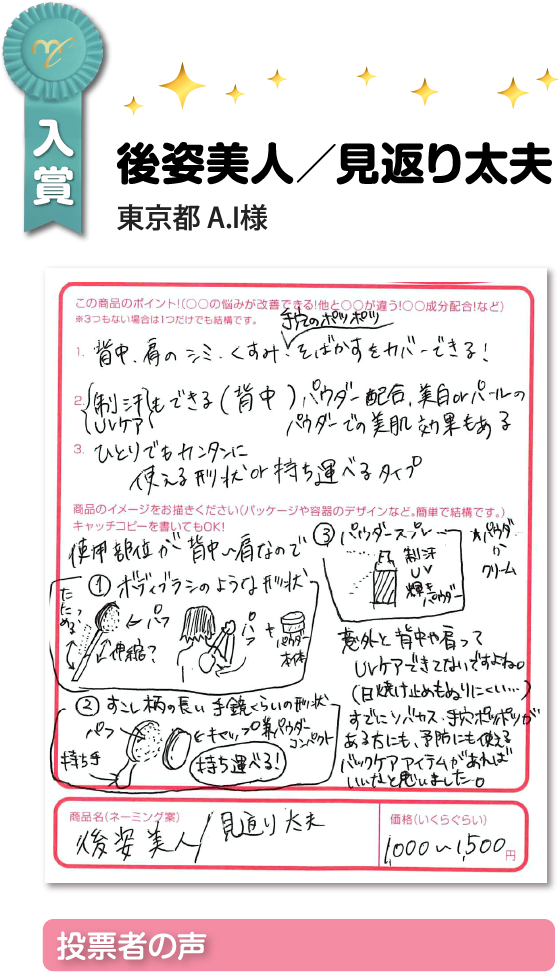 入賞
後姿美人／見返り太夫
東京都 A.I様
この商品のポイント!(○○の悩みが改善できる!他と○○が違う!○○成分配合!など)
※3つもない場合は1つだけでも結構です。
毛穴のポツポツ
1. 背中、肩のシミ・くすみ・そばかすをカバーできる!
2. {制汗 UVケア}もできる(背中)パウダー配合、美白orパールの
パウダーでの美肌効果もある
3. ひとりでもカンタンに
使える形状or持ち運べるタイプ
商品のイメージをお描きください(パッケージや容器のデザインなど。簡単で結構です。)
キャッチコピーを書いてもOK!
使用部位が背中〜肩なので
① ボディブラシのような形状
たためる
←パフ
伸縮?
パフ
+
パウダー
本体
② すこし柄の長い手鏡くらいの形状
パフ
持ち手
パウダー
コンパクト
持ち運べる!
③ パウダースプレー
制汗
UV
輝き
パウダー
パウダー
か
クリーム
意外と背中や肩って
UVケアできてないですよね。
(日焼け止めもぬりにくい…)
すでにソバカス・毛穴ポツポツが
ある方にも、予防にも使える
バックケアアイテムがあれば
いいなと思いました。
商品名(ネーミング案)
後姿美人/見返り太夫
価格(いくらぐらい)
1,000〜1,500円
投票者の声